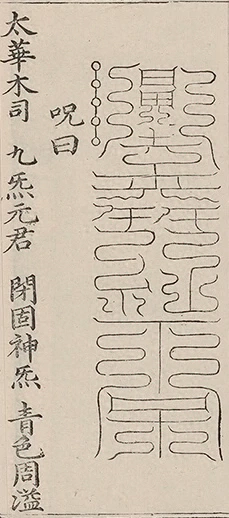 呪曰
太華木司 九炁元君 閉固神炁 青色周溢